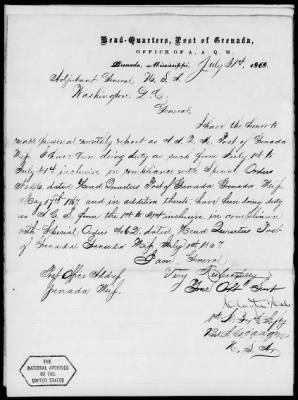 Head-Quarters, Post of Grenada,
OFFICE OF A. A. Q. M.
Grenada, Mississippi, July 31st 1868.
Adjutant General U. S. A
Washington D. C.
General,
I have the honor to
make personal monthly report as A. A. Q. M. Post of Grenada
Miss. I have been doing duty as such from July 1st to
July 31st inclusive in compliance with Special Orders
dated Head Quarters Post of Grenada Grenada Miss
May 17th 1867 and in addition thereto, have been doing duty
as A. C. S. from the 1st to 31st inclusive, in compliance
with Special Orders dated Head Quarters Post
of Grenada Grenada Miss July 1867.
I am General
Post Office Address Very Respectfully
Grenada Miss. Your Obdt Servt
1st Lt Infty
U. S. A.
THE
NATIONAL ARCHIVES
OF THE
UNITED STATES